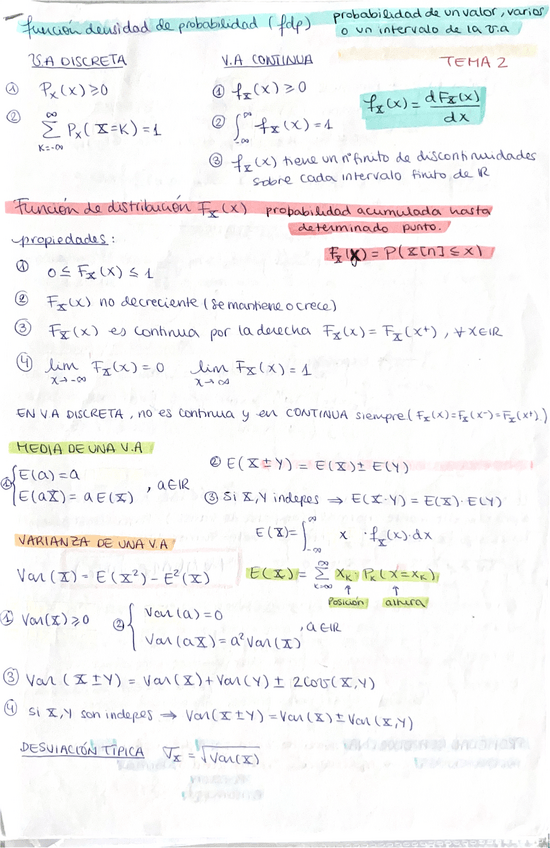 función densidad de probabilidad (fdp) probabilidad de un valor, varios
o un intervalo de la v.a
V.A DISCRETA V.A CONTINUA TEMA 2
① Pₓ(x) ≥ 0 ① f_X(x) ≥ 0
f_X(x) = dF_X(x)/dx
② ∑_{K=-∞}^{∞} Pₓ(X=K) = 1 ② ∫_{-∞}^{∞} f_X(x) = 1
③ f_X(x) tiene un nº finito de discontinuidades
sobre cada intervalo finito de ℝ
Función de distribución F_X(x) probabilidad acumulada hasta
determinado punto.
propiedades: F_X(x) = P(X[n] ≤ x)
① 0 ≤ F_X(x) ≤ 1
② F_X(x) no decreciente (se mantiene o crece)
③ F_X(x) es continua por la derecha F_X(x) = F_X(x⁺), ∀x∈ℝ
④ lim_{x→-∞} F_X(x) = 0 lim_{x→∞} F_X(x) = 1
EN V.A DISCRETA, no es continua y en CONTINUA siempre (F_X(x)=F_X(x⁻)=F_X(x⁺).)
MEDIA DE UNA V.A
① { E(a) = a
E(aX) = a E(X) , a∈ℝ
② E(X ± Y) = E(X) ± E(Y)
③ Si X,Y indepes ⇒ E(X·Y) = E(X)·E(Y)
E(X) = ∫_{-∞}^{∞} x · f_X(x)·dx
VARIANZA DE UNA V.A
Var(X) = E(X²) - E²(X) E(X) = ∑_{K=∞}^{∞} x_K · P_K(X=x_K)
↑ ↑
Posición altura
① Var(X) ≥ 0 ② { Var(a) = 0
Var(aX) = a² Var(X) , a∈ℝ
③ Var(X ± Y) = Var(X) + Var(Y) ± 2cov(X,Y)
④ si X,Y son indepes ⇒ Var(X ± Y) = Var(X) ± Var(X,Y)
DESVIACIÓN TÍPICA √x = √Var(X)